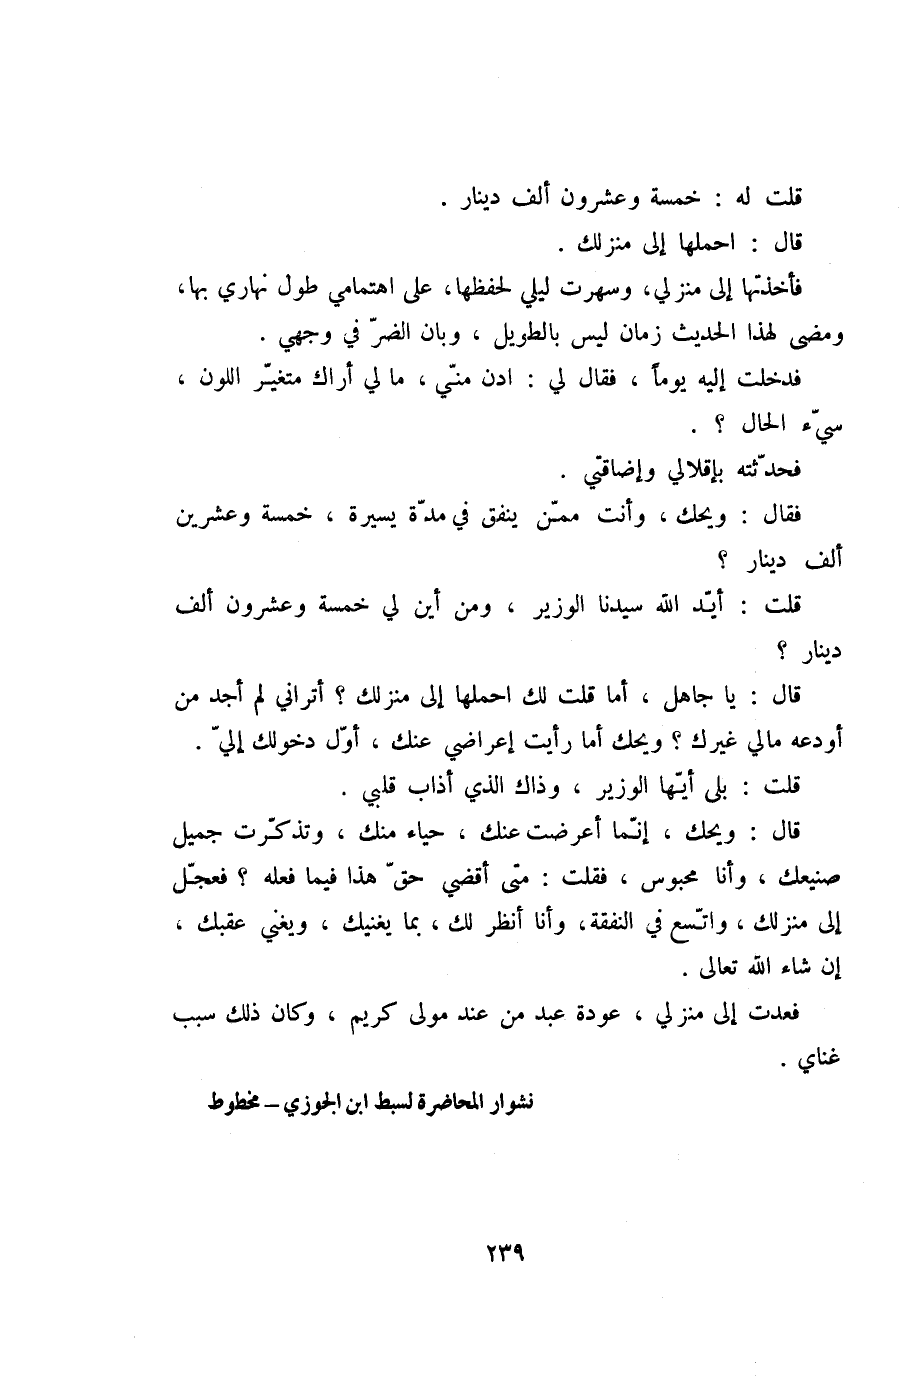 قلت له : خمسة وعشرون ألف دينار .
قال : احملها إلى منزلك .
فأخذتها إلى منزلي، وسهرت ليلي لحفظها، على اهتمامي طول نهاري بها،
ومضى لهذا الحديث زمان ليس بالطويل ، وبان الضرّ في وجهي .
فدخلت إليه يوماً ، فقال لي : ادن منّي ، ما لي أراك متغيّر اللون ،
سيّء الحال ؟ .
فحدّثته بإقلالي وإضاقتي .
فقال : ويحك ، وأنت ممّن ينفق في مدّة يسيرة ، خمسة وعشرين
ألف دينار ؟
قلت : أيّد الله سيدنا الوزير ، ومن أين لي خمسة وعشرون ألف
دينار ؟
قال : يا جاهل ، أما قلت لك احملها إلى منزلك ؟ أتراني لم أجد من
أودعه مالي غيرك ؟ ويحك أما رأيت إعراضي عنك ، أوّل دخولك إليّ .
قلت : بلى أيّها الوزير ، وذاك الذي أذاب قلبي .
قال : ويحك ، إنّما أعرضت عنك ، حياء منك ، وتذكّرت جميل
صنيعك ، وأنا محبوس ، فقلت : متى أقضي حقّ هذا فيما فعله ؟ فعجّل
إلى منزلك ، واتّسع في النفقة، وأنا أنظر لك ، بما يغنيك ، ويغني عقبك ،
إن شاء الله تعالى .
فعدت إلى منزلي ، عودة عبد من عند مولى كريم ، وكان ذلك سبب
غناي .
نشوار المحاضرة لسبط ابن الجوزي – مخطوط
٢٣٩